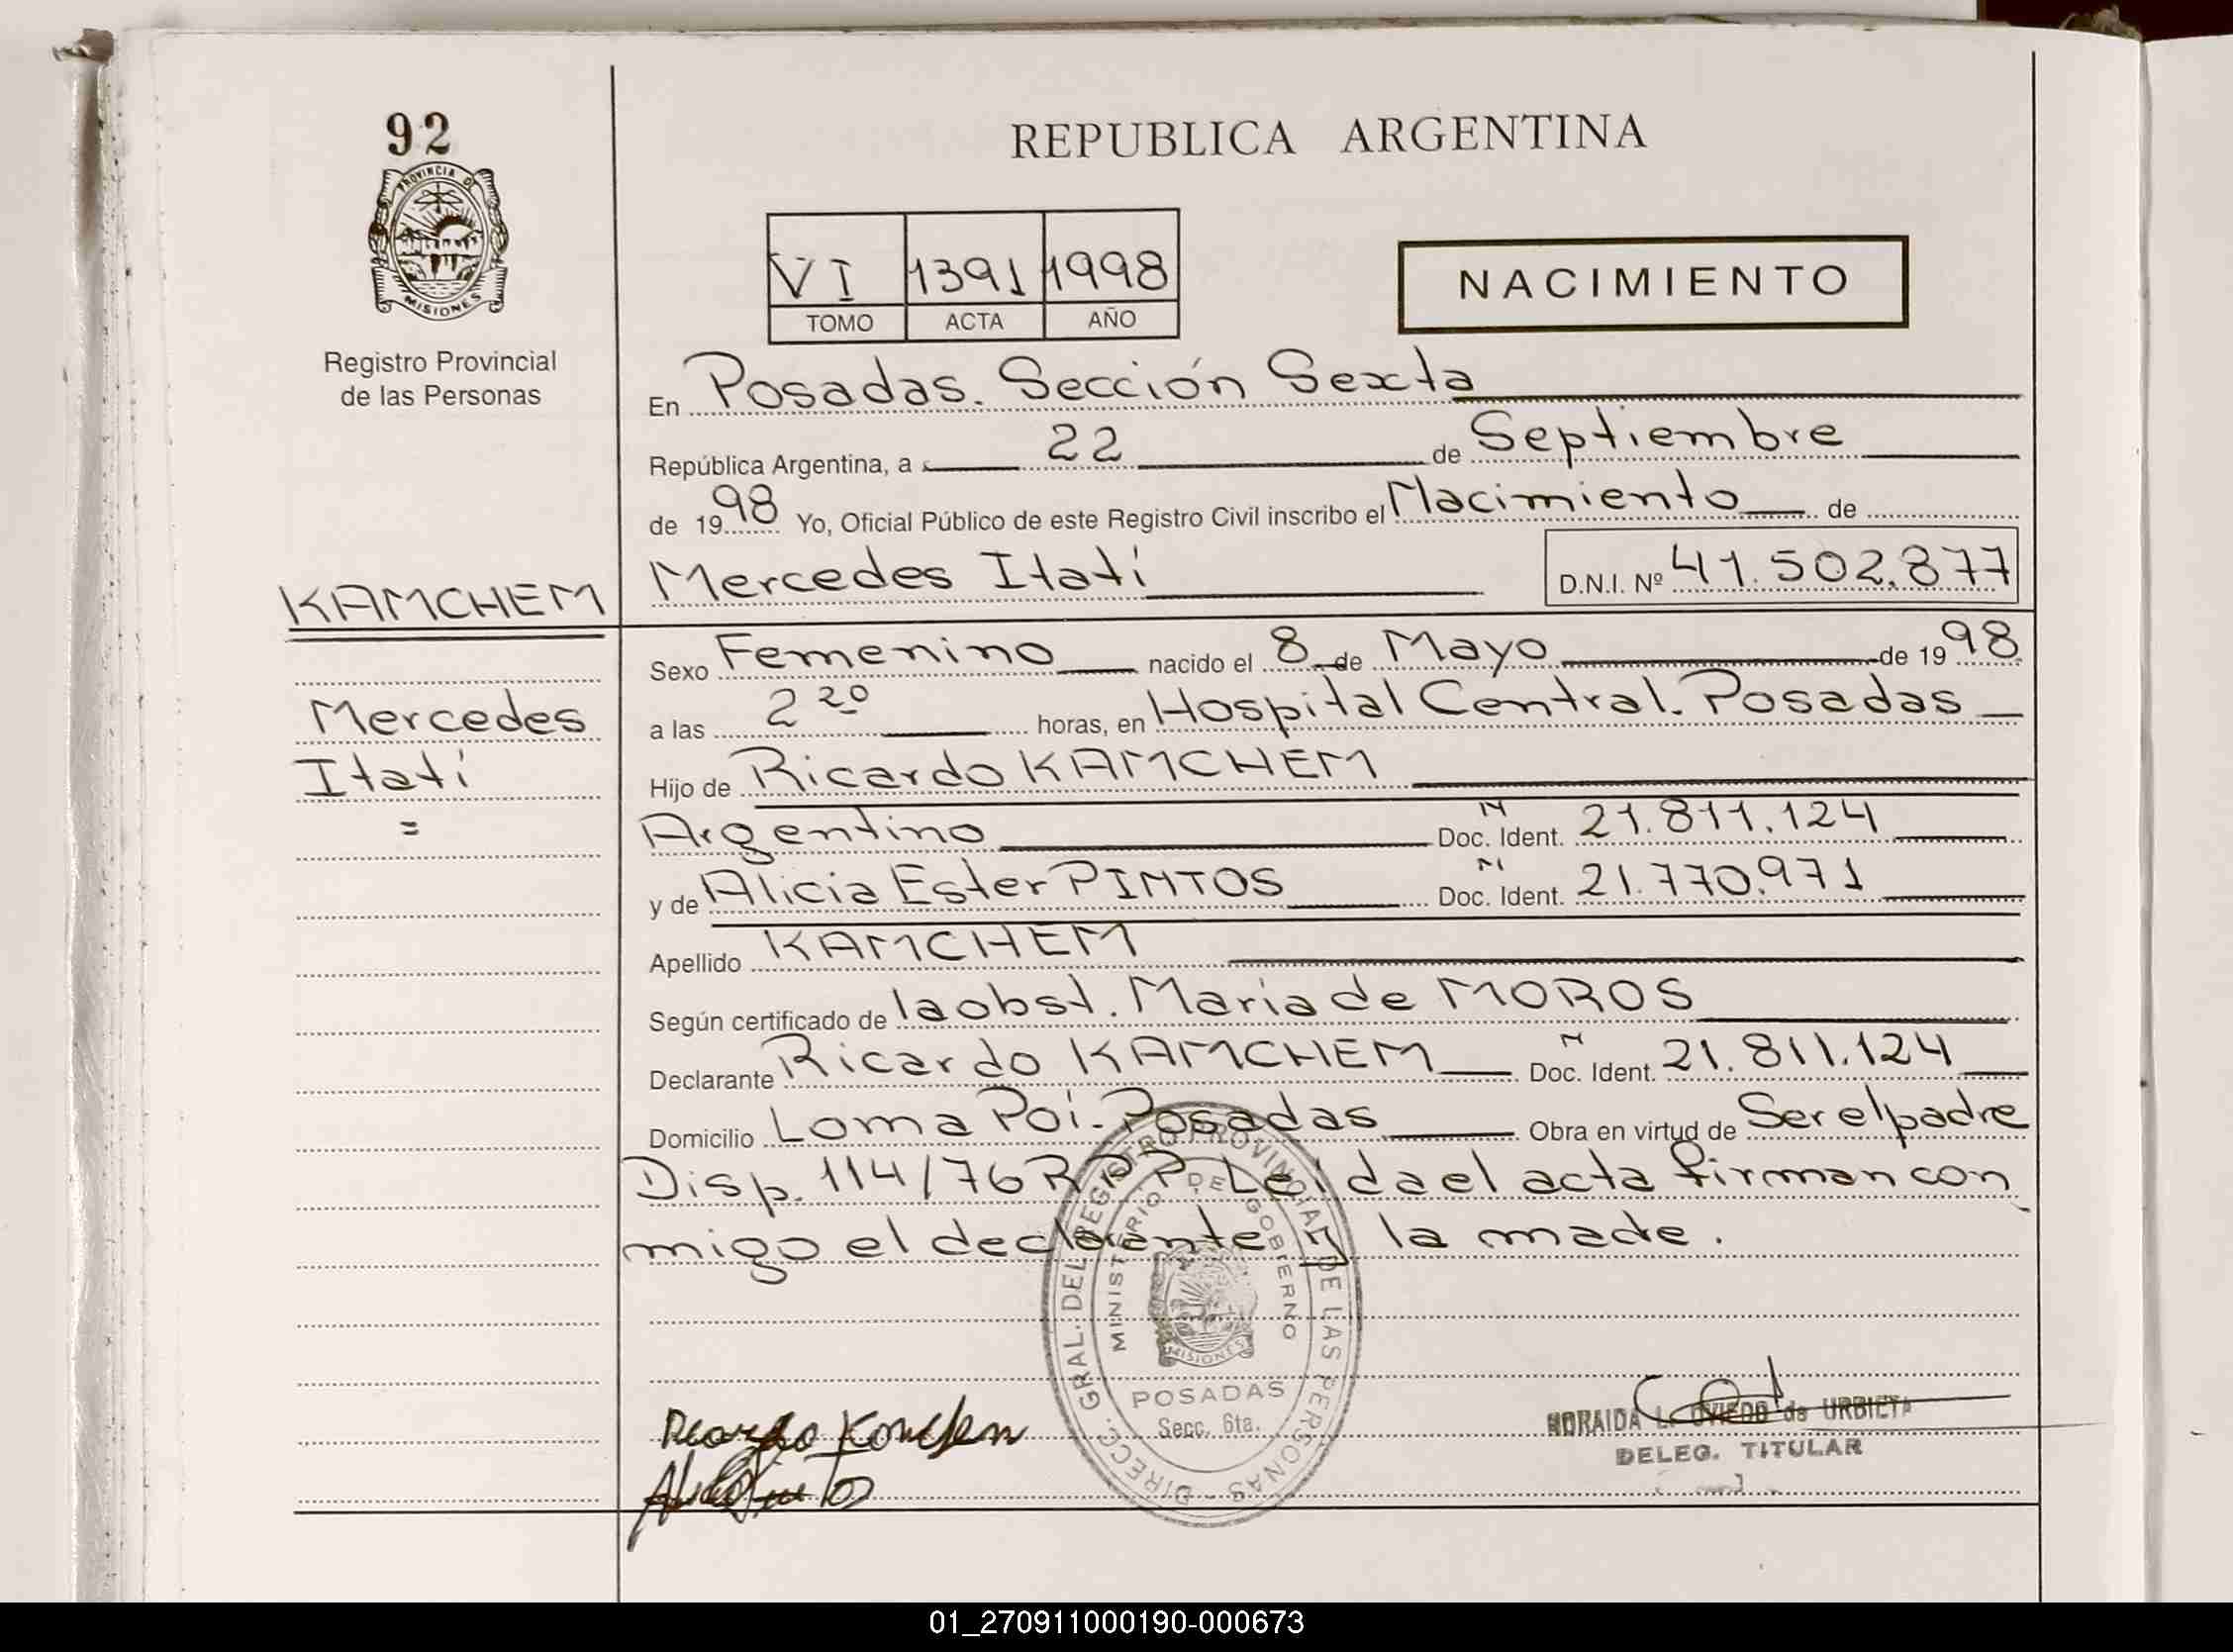 92
PROVINCIA DE
MISIONES
Registro Provincial
de las Personas
REPUBLICA ARGENTINA
VI 1391 1998
TOMO ACTA AÑO
NACIMIENTO
En Posadas. Sección Sexta
República Argentina, a 22 de Septiembre
de 1998 Yo, Oficial Público de este Registro Civil inscribo el Nacimiento de
Mercedes Itatí D.N.I. Nº 41.502.877
KAMCHEM
Mercedes
Itatí
=
Sexo Femenino nacido el 8 de Mayo de 1998
a las 2 20 horas, en Hospital Central. Posadas
Hijo de Ricardo KAMCHEM
Argentino N Doc. Ident. 21.811.124
y de Alicia Ester PINTOS N Doc. Ident. 21.770.971
Apellido KAMCHEM
Según certificado de la obst. Maria de MOROS
Declarante Ricardo KAMCHEM N Doc. Ident. 21.811.124
Domicilio Loma Poí. Posadas Obra en virtud de Ser el padre
Disp. 114/76 R.P.P. Leída el acta firman con
migo el declarante y la made.
DIRECC. GRAL. DEL REGISTRO PROVINCIAL DE LAS PERSONAS -
MINISTERIO DE GOBERNO
MISIONES
POSADAS
Secc. 6ta.
NORAIDA L. OVIEDO de URBIETA
DELEG. TITULAR
01_270911000190-000673